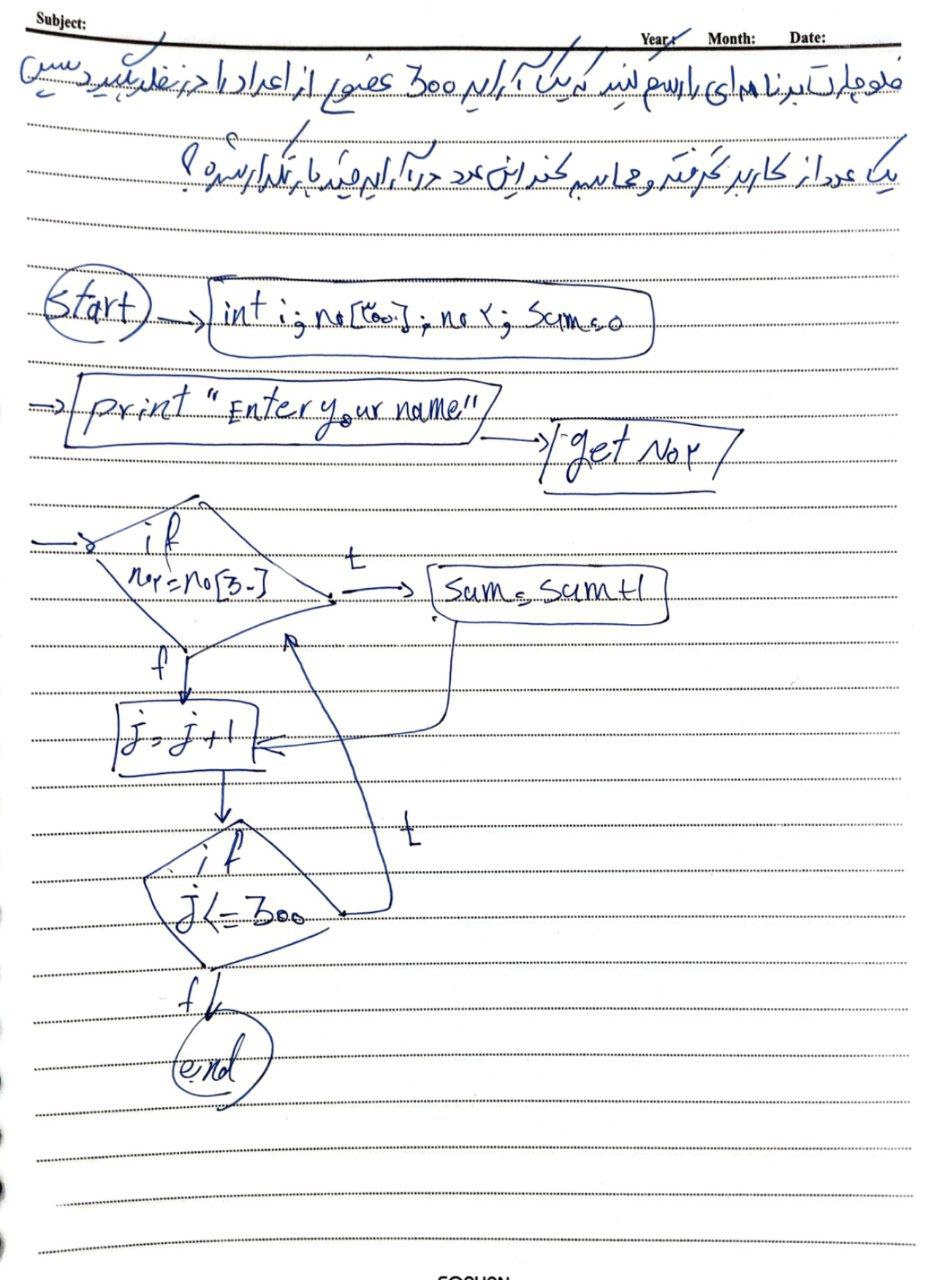 Subject:
Year: Month: Date:
فلوچارت برنامه ای را رسم کنید که یک آرایه 300 عضوی از اعداد را در نظر بگیرد سپس
یک عدد از کاربر گرفته و محاسبه کند این عدد در آرایه چند بار تکرار شده؟
start
int i; no[۳۰۰]; no ۲; Sum=0
print "Enter your name"
get No۲
if
no۲=no[30]
t
sum=sum+1
f
j=j+1
t
if
j<=300
f
end